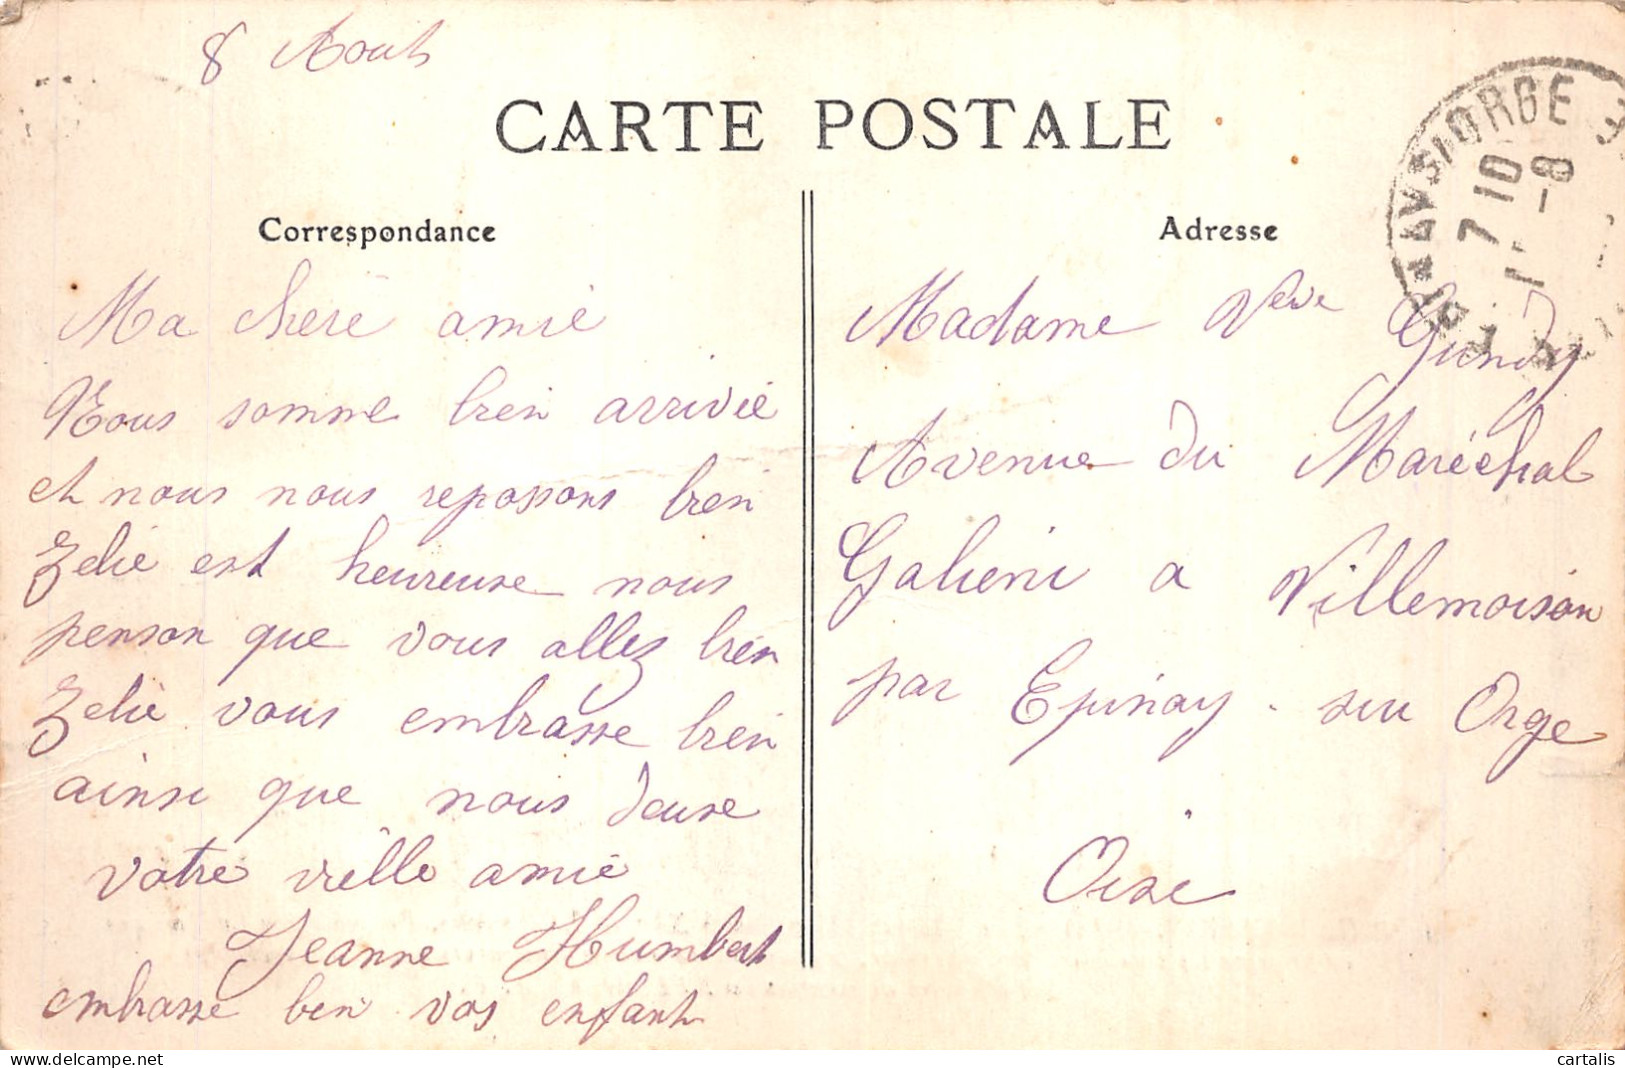 8 Aout
CARTE POSTALE
Correspondance
Ma chere amie
Nous somme bien arrivée
et nous nous repossons bien
Zelie est heureuse nous
penson que vous allez bien
Zelie vous embrasse bien
ainsi que nous deuse
votre vielle amie
Jeanne Humbert
embrasse bien vos enfant
Adresse
Madame Veve
Avenue du Maréchal
Galieni a Villemoison
par Epinay-sur Orge
Oise
S/ORGE
7 10
-8
cartalis